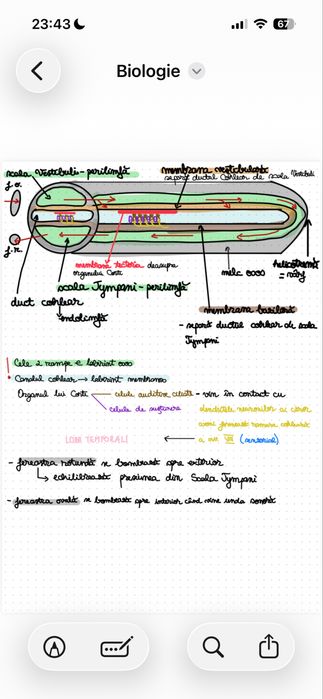 23:43
67
Biologie
scala Vestibuli - perilimfă
membrana vestibulară
separă ductul cohlear de scala Vestibuli
f.o.
f.r.
membrana tectoria deasupra
organului Corti
melc osos
helicotremă
= vârf
scala Tympani - perilimfă
duct cohlear
endolimfă
membrana bazilară
- separă ductul cohlear de scala
Tympani
! Cele 2 rampe e labirint osos
Canalul cohlear → labirint membranos
Organul lui Corti
celule auditive ciliate - vin în contact cu
celule de susținere
dendritele neuronilor ai căror
axoni formează ramura cohleară
a nv. VIII (senzorial)
LOBI TEMPORALI
- fereastra rotundă se bombează spre exterior
echilibrează presiunea din Scala Tympani
- fereastra ovală se bombează spre interior când vine unda sonoră